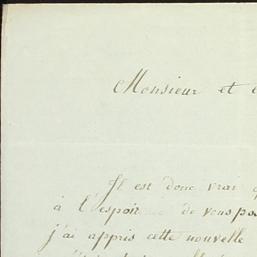 Monsieur et
Il est donc vrai
à l'espoir de vous
j'ai appris cette nouvelle